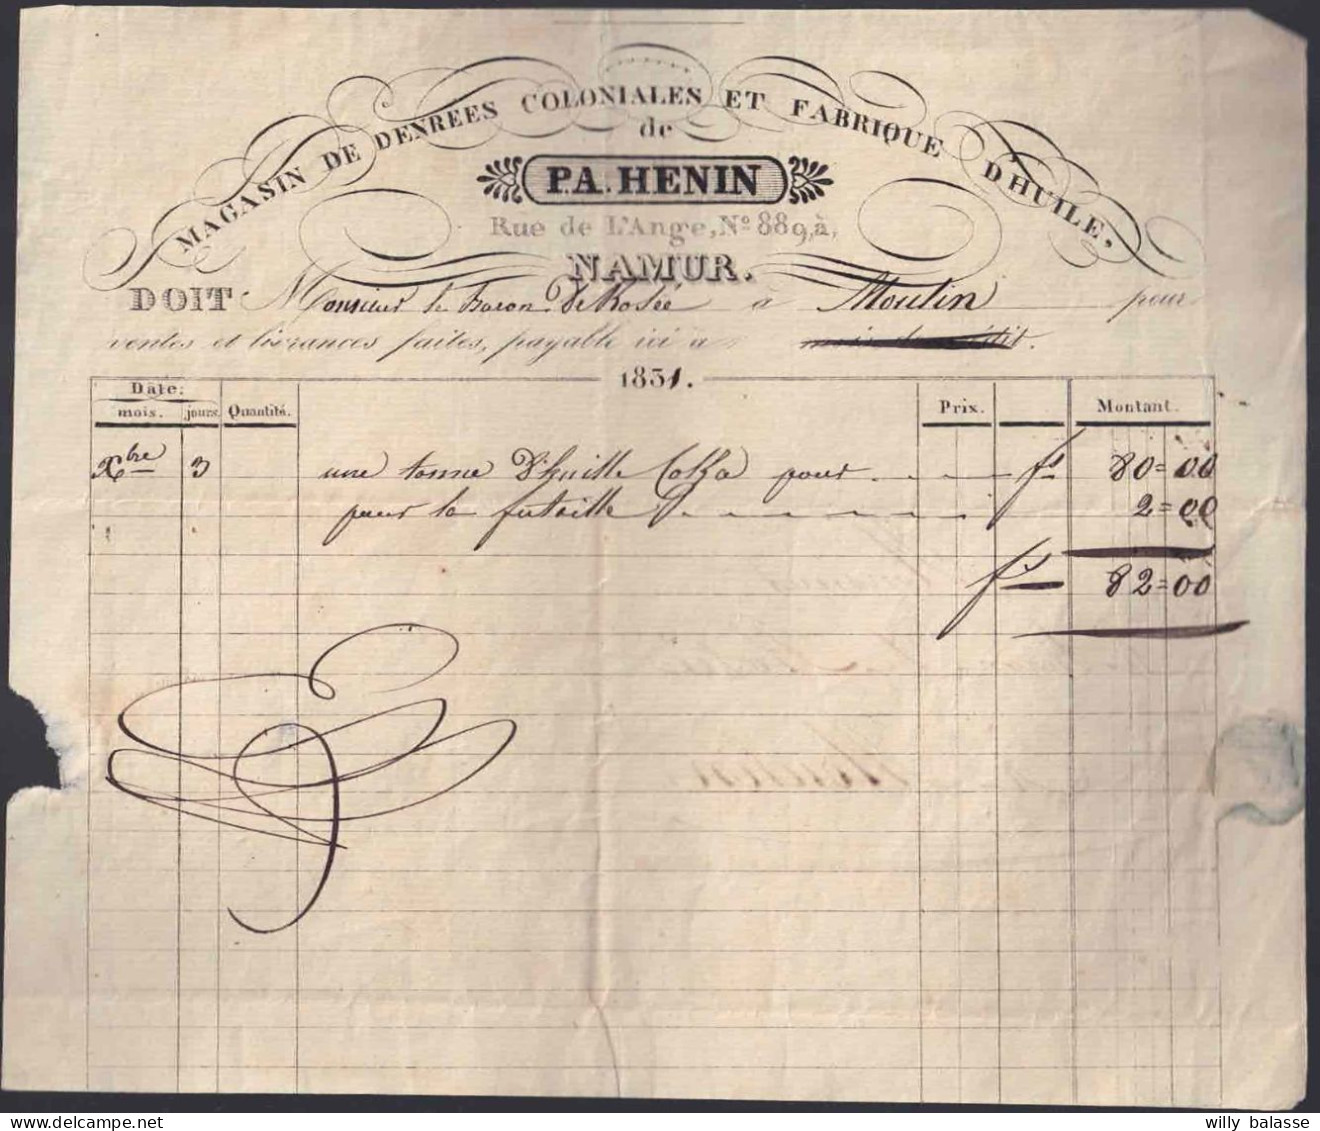 MAGASIN DE DENREES COLONIALES ET FABRIQUE D'HUILE,
de
P.A. HENIN
Rue de L'Ange, N° 889, à,
NAMUR.
DOIT Monsieur le Baron De Rosée à Moulin pour
ventes et livrances faites, payable ici a mois de crédit.
1831.
Date: mois. jours. Quantité. Prix. Montant.
Xbre 3 une tonne d'huille Colza pour fs 80=00
pour la futaille 2=00
fs 82=00
willy balasse